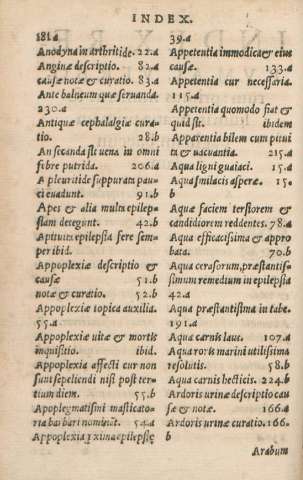 INDEX.
181.a
Anodyna in arthritide. 22.a
Anginæ descriptio. 82.a
causæ notæ & curatio. 83.a
Ante balneum quæ seruanda.
230.a
Antiquæ cephalalgiæ cura-
tio. 28.b
An secanda sit uena in omni
febre putrida. 206.a
A pleuritide suppurati pau-
ci euadunt. 91.b
Apes & alia multa epilep-
siam detegunt. 42.b
epilepsia fere sem-
per ibid.
Appoplexiæ descriptio &
causæ 51.b
notæ & curatio. 52.b
Appoplexiæ topica auxilia.
55.a
Appoplexiæ uitæ & mortis
inquisitio. ibid.
Appoplexia affecti cur non
sunt sepeliendi nisi post ter-
tium diem. 55.b
Apoplegmatismi masticato-
ria barbari nominãt. 54.a
Appoplexia epilepsię
39.a
Appetentia immodica & eius
causæ. 133.a
Appetentia cur necessaria.
115.a
Appetentia quomodo fiat &
quid sit. ibidem
Apparentia bilem cum pitui
ta & uacuantia. 215.a
Aqua ligni guaiaci. 15.a
Aqua smilacis asperæ. 15.
b
Aquæ faciem tersiorem &
candidiorem reddentes. 78.a
Aqua efficacissima & appro
bata. 70.b
Aqua cerasorum, præstantis-
simum remedium in epilepsia
42.a
Aqua præstantissima in tabe.
191.a
Aqua carnis laus. 107.a
Aqua roris marini utilissima
resolutis. 58.b
Aqua carnis hecticis. 224.b
Ardoris urinæ descriptio cau
sæ & notæ. 166.a
Ardoris urinæ curatio. 166.
b
Arabum